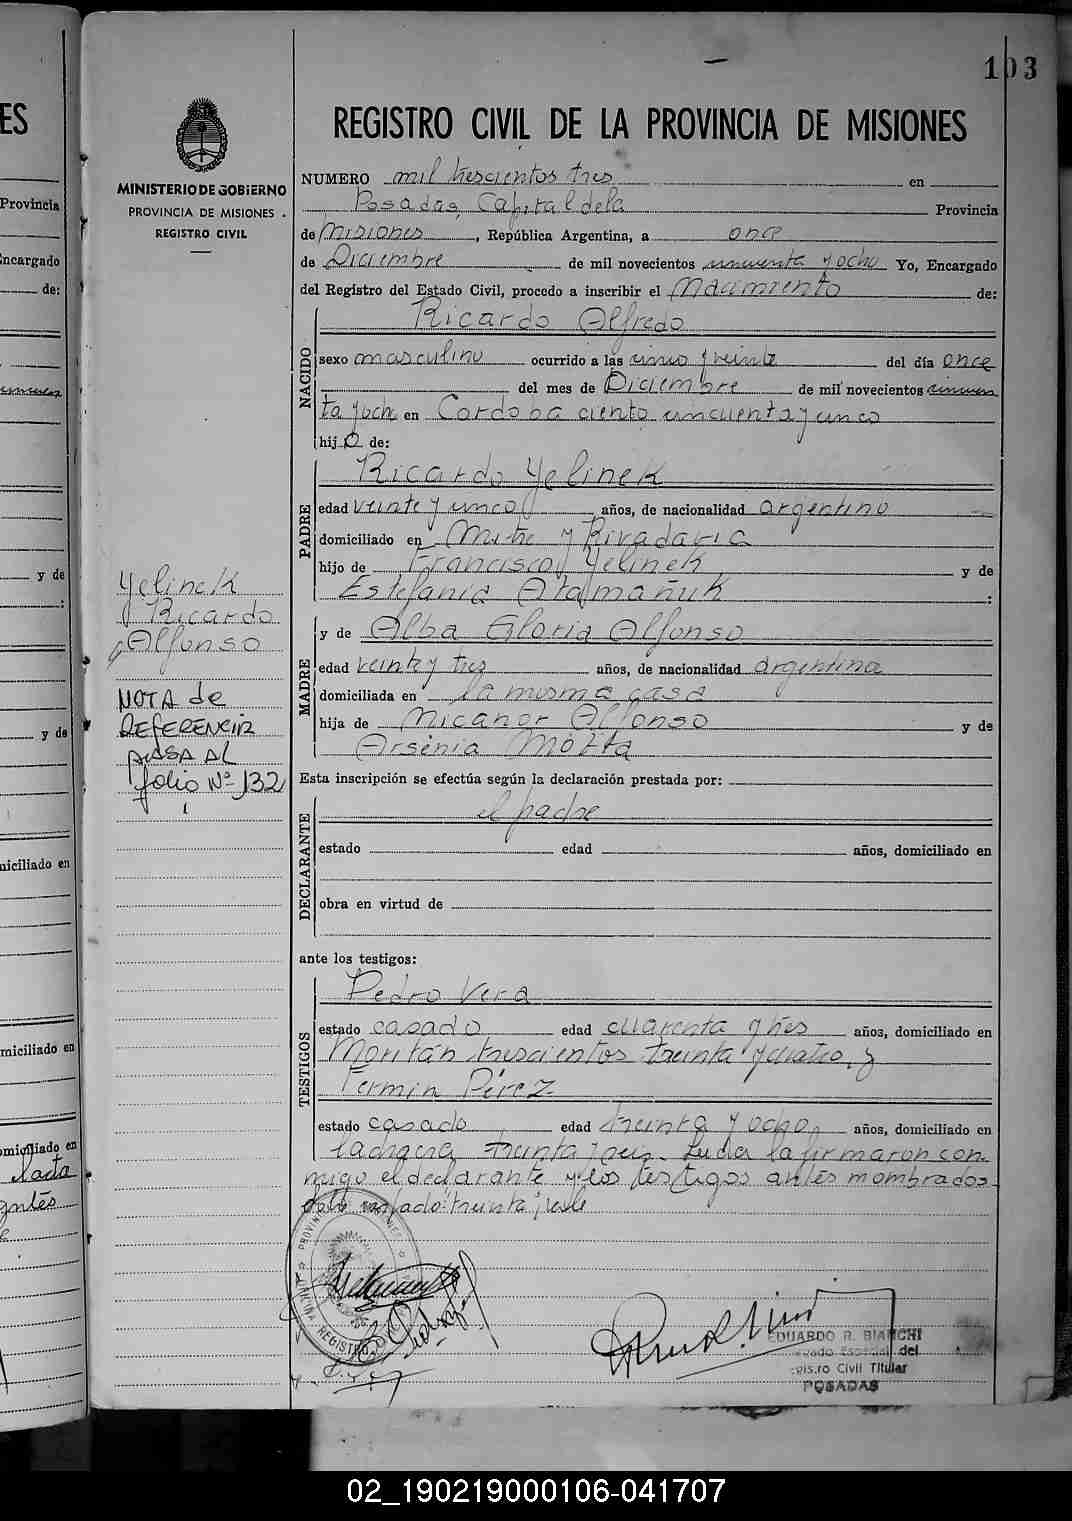 103
REGISTRO CIVIL DE LA PROVINCIA DE MISIONES
MINISTERIO DE GOBIERNO
PROVINCIA DE MISIONES
REGISTRO CIVIL
NUMERO mil trescientos tres en
Posadas, Capital de la Provincia
de Misiones, República Argentina, a once
de Diciembre de mil novecientos cincuenta y ocho Yo, Encargado
del Registro del Estado Civil, procedo a inscribir el Nacimiento de:
NACIDO
Ricardo Alfredo
sexo masculino ocurrido a las cinco y veinte del día once
del mes de Diciembre de mil novecientos cincuen
ta y ocho en Cordoba ciento cincuenta y cinco
hijo de:
PADRE
Ricardo Yelinek
edad veinte y cinco años, de nacionalidad argentino
domiciliado en Mitre y Rivadavia
hijo de Francisco Yelinek y de
Estefania Atamañuk :
MADRE
y de Alba Gloria Alfonso
edad veinte y tres años, de nacionalidad argentina
domiciliada en la misma casa
hija de Nicanor Alfonso y de
Arsenia Motta
Esta inscripción se efectúa según la declaración prestada por:
DECLARANTE
el padre
estado edad años, domiciliado en
obra en virtud de
ante los testigos:
TESTIGOS
Pedro Vera
estado casado edad cuarenta y tres años, domiciliado en
trescientos treinta y cuatro, y
Fermin Pérez
estado casado edad treinta y ocho años, domiciliado en
la chacra treinta y Leida la firmaron con
migo el declarante y los testigos antes mombrados
treinta
Yelinek
Ricardo
Alfonso
NOTA de
REFERENCIA
PASA AL
folio Nº 132
EDUARDO R. BIANCHI
Especial del
Civil Titular
POSADAS
ES
Provincia
Encargado
de:
y de
:
y de
niciliado en
miciliado en
omiciliado en
02_190219000106-041707